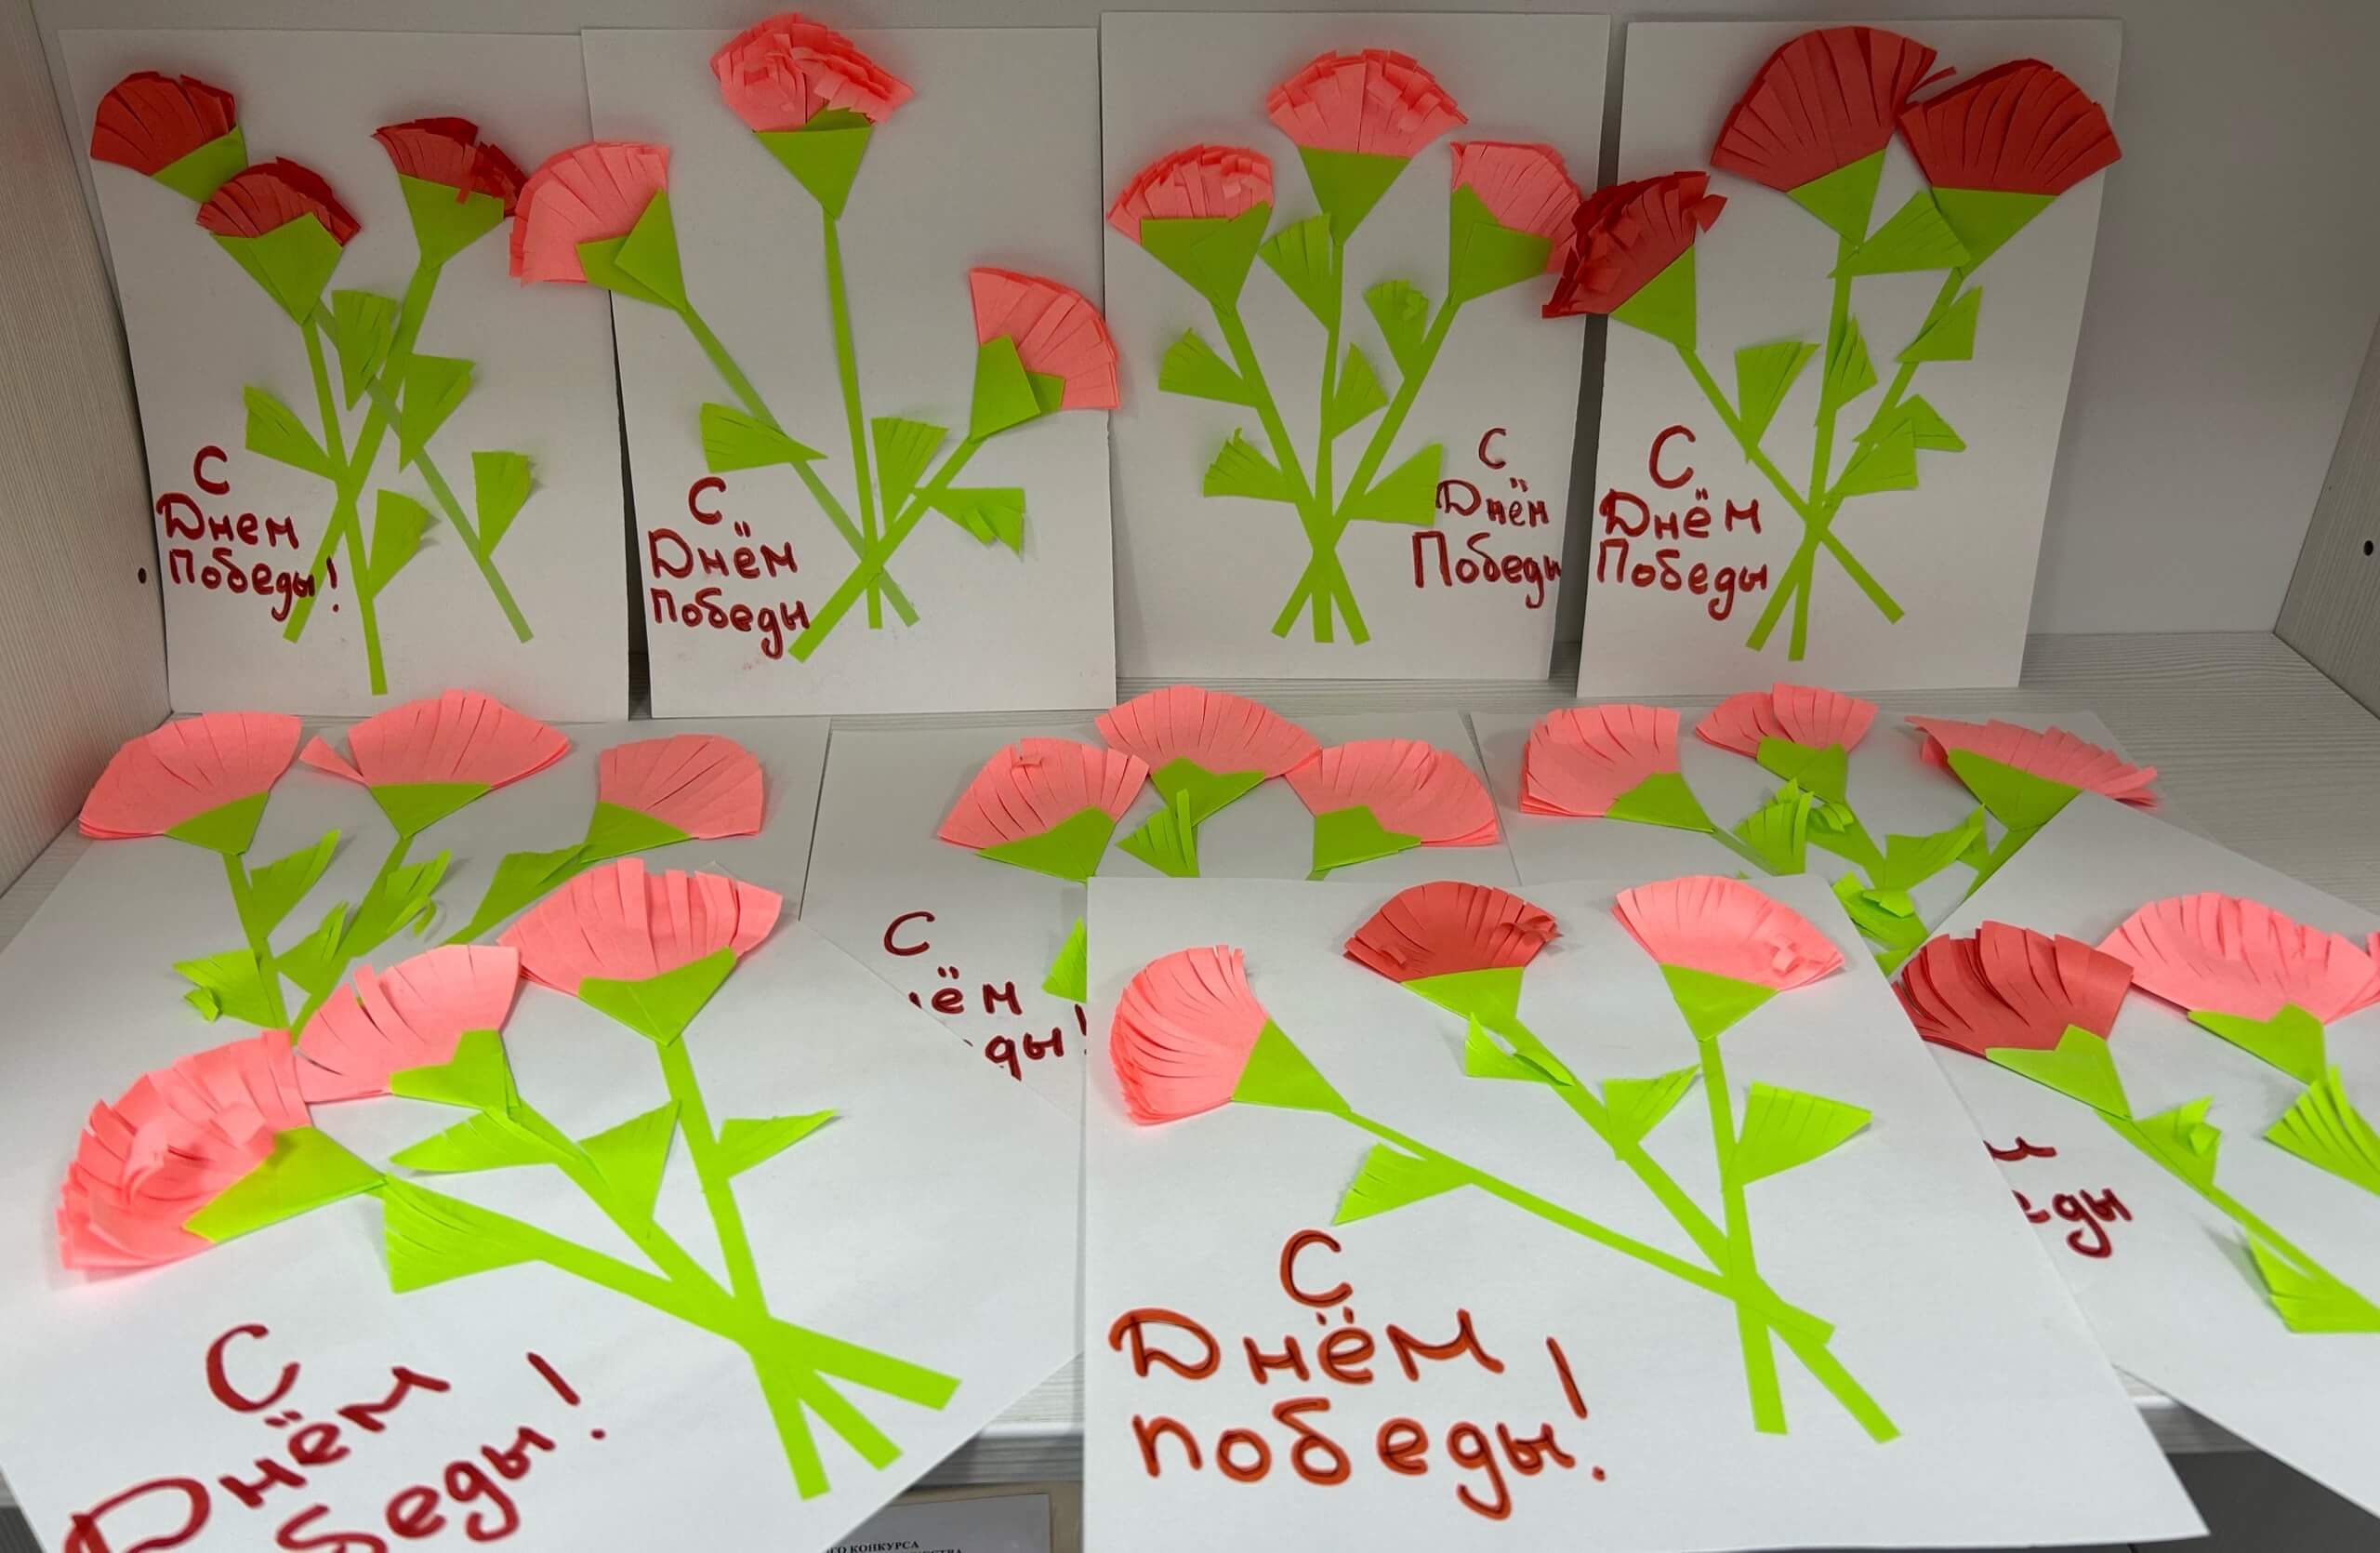 С
Днем
Победы!
С
Днём
Победы
С
Днём
Победы
С
Днём
Победы
С
ём
ды!
еды
С
Днём
беды!
С
Днём
победы!
ГО КОНКУРСА